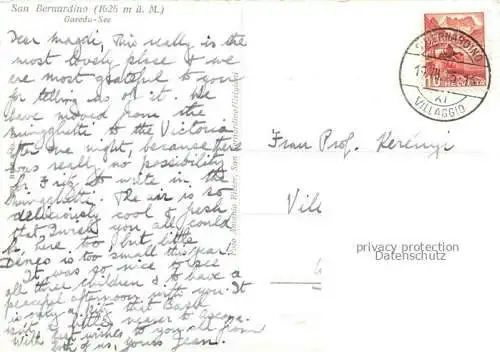 San Bernardino (1626 m ü. M.)
Garedu-See
Dear Magdi, This really is the
most lovely place & we
are most grateful to you
for telling us of it. We
have moved from the
to the Victoria
for one night, because there
was really no possibility
for to write in the
The air is so
deliciously cool & fresh
that I wish you all could
be here too, but little
is too small this year.
It was so nice to see
all three children & to have a
peaceful afternoon with you. It
is only a pity that Basle
isn't a little nearer to Ascona.
With best wishes to you all from
both of us, yours Jean.
S. BERNARDINO
VILLAGGIO
10 HELVETIA
Frau Prof. Kerényi
privacy protection
DARKPOOL